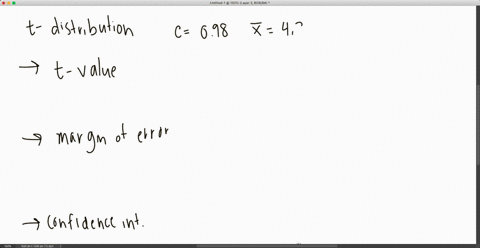 t- distribution c= 0.98 x̄ = 4.
→ t-value
→ margin of error
→ confidence int.